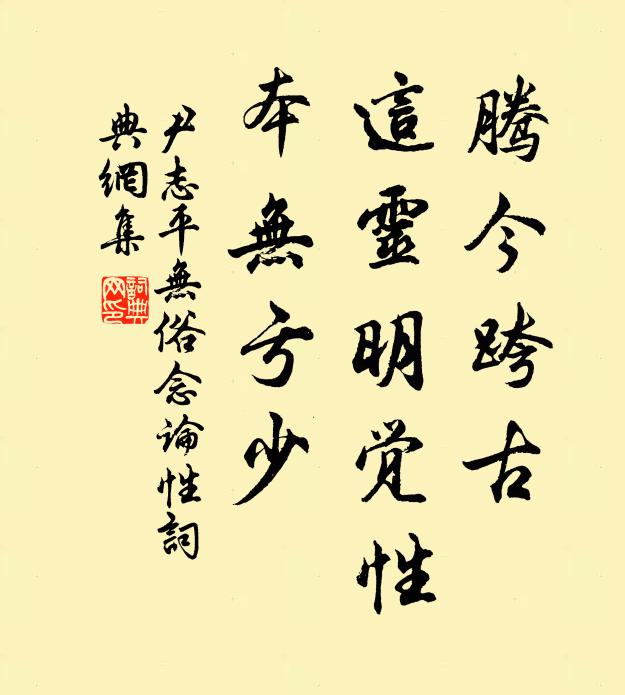 腾今跨古
這靈明覚性
本無亏少
尹志平無俗念論性詞
典網集
詞典网印